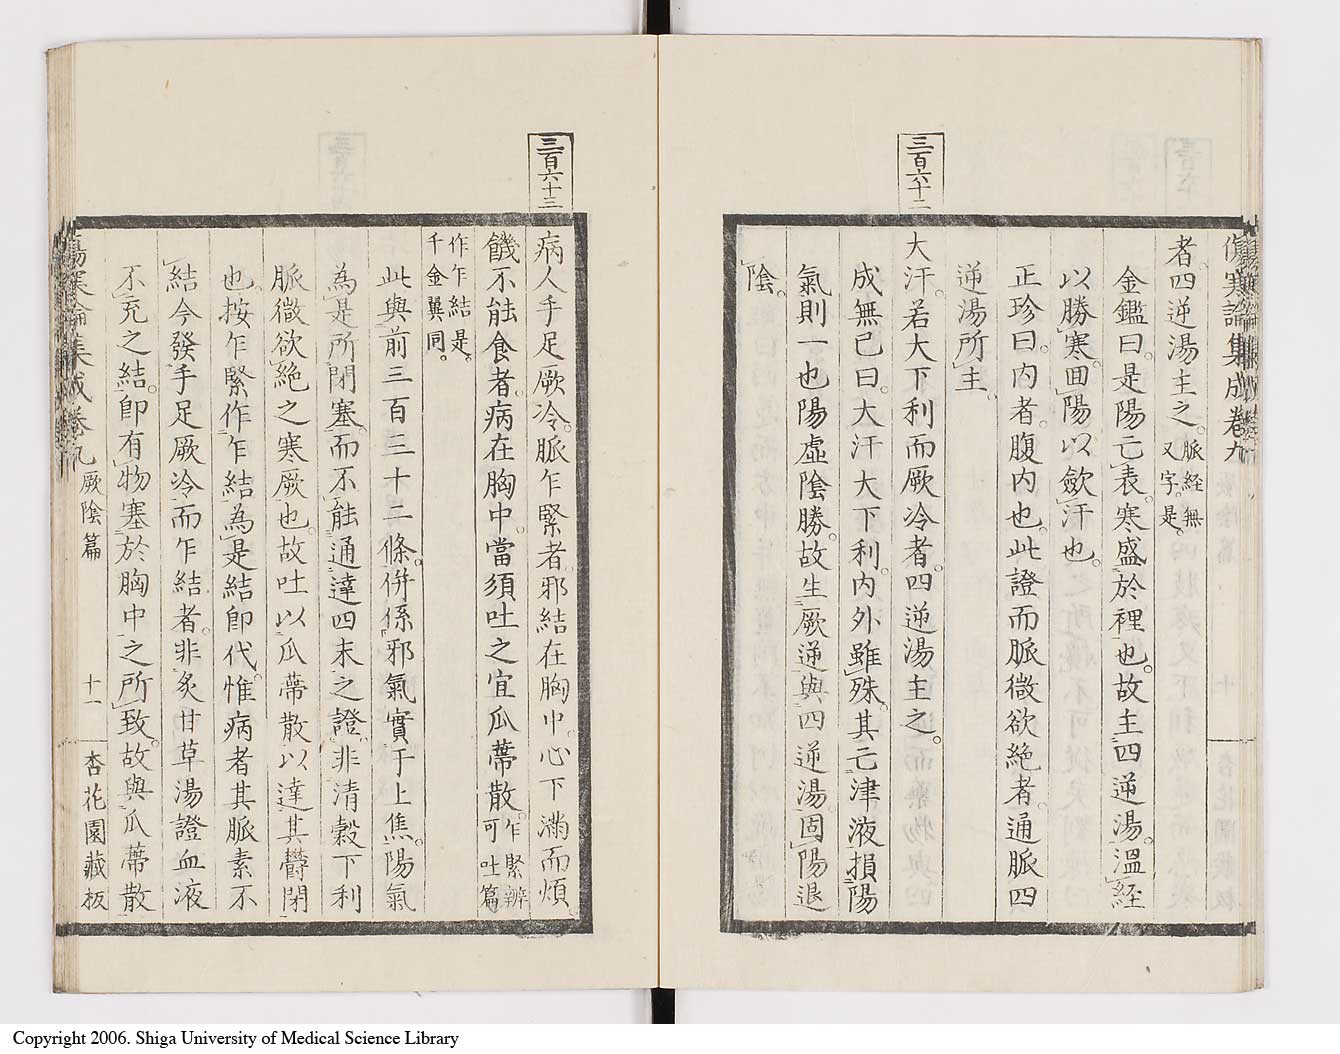 傷寒論集成卷九
者。四逆湯主之。脈経無又字。是。
金鑑曰。是陽亡表。寒盛於裡也。故主四逆湯。溫経
以勝寒。囬陽以斂汗也。
正珍曰。内者。腹内也。此證而脈微欲絶者。通脈四
逆湯所主
三百六十二
大汗。若大下利而厥冷者。四逆湯主之。
成無己曰。大汗大下利。内外雖殊。其亡津液損陽
氣則一也陽虛陰勝。故生厥逆與四逆湯固陽退
陰。
三百六十三
病人手足厥冷。脈乍緊者。邪結在胸中。心下滿而煩。
饑不能食者。病在胸中。當須吐之宜瓜蔕散。乍緊辨可吐篇
作乍結是。千金翼同。
此與前三百二十二條。併係邪氣實于上焦。陽氣
為是所閉塞。而不能通達四末之證。非清穀下利
脈微欲絶之寒厥也。故吐以瓜蔕散以達其欝閉
也。按乍緊作乍結為是結卽代。惟病者其脈素不
結今發手足厥冷而乍結者。非炙甘草湯證血液
不充之結。卽有物塞於胸中之所致。故與瓜蔕散
傷寒論集成卷九 厥陰篇 十一 杏花園藏板
Copyright 2006. Shiga University of Medical Science Library